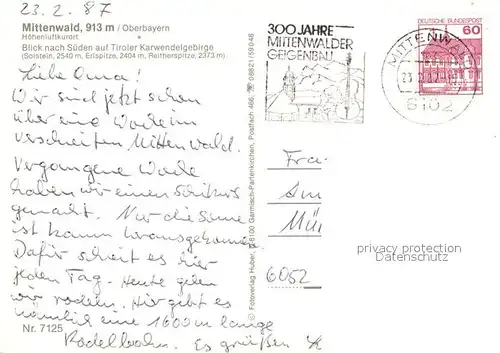 23.2.87
Mittenwald, 913 m / Oberbayern
Höhenluftkurort
Blick nach Süden auf Tiroler Karwendelgebirge
(Solstein, 2540 m, Erlspitze, 2404 m, Reitherspitze, 2373 m)
Liebe Oma!
Wir sind jetzt schon
über eine Woche im
verschneiten Mittenwald.
Vergangene Woche
haben wir einen Schikurs
gemacht. Nur die Sonne
ist kaum herausgekommen.
Dafür schneit es hier
jeden Tag. Heute gehen
wir rodeln. Hier gibt es
nämlich eine 1600 m lange
Rodelbahn. Es grüßen
Nr. 7125
© Fotoverlag Huber, D-8100 Garmisch-Partenkirchen, Postfach 466, ☎ 08821/59048
300 JAHRE
MITTENWALDER
GEIGENBAU
MITTENWALD
8102
DEUTSCHE BUNDESPOST
60
Fra
Mün
6052
privacy protection
Datenschutz